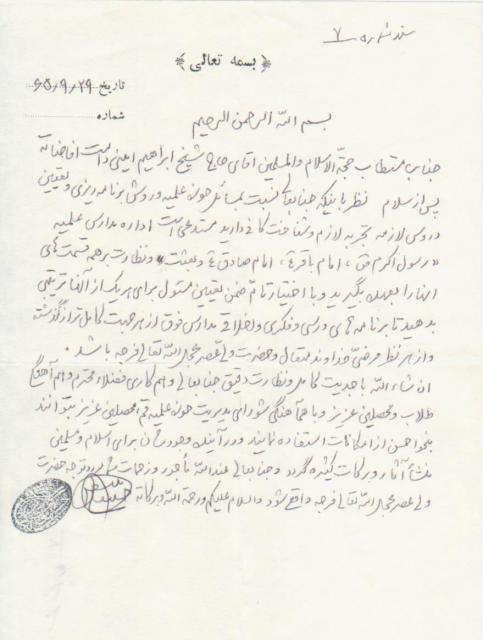 سند شماره ۷
بسمه تعالی
تاریخ ۶۵/۹/۲۹
شماره
بسم الله الرحمن الرحیم
جناب مستطاب حجةالاسلام والمسلمین آقای حاج شیخ ابراهیم امینی دامت افاضاته
پس از سلام نظر باینکه جنابعالی نسبت بمسائل حوزه علمیه و روش برنامه‌ریزی و تعیین
دروس لازمه تجربه لازم و شناخت کافی دارید مستدعی است اداره مدارس علمیه
«رسول اکرم ص، امام باقر ع، امام صادق ع و بعثت» و نظارت بر همه قسمت‌های
آنها را بعهده بگیرید و با اختیار تام ضمن تعیین مسئول برای هر یک از آنها ترتیبی
بدهید تا برنامه‌های درسی و فکری و اخلاقی مدارس فوق از هر جهت کامل‌تر از گذشته
و از هر نظر مرضیّ خداوند متعال و حضرت ولی عصر عجل الله تعالی فرجه باشد.
ان شاء الله با جدیت کامل و نظارت دقیق جنابعالی و همکاری فضلاء محترم و هم آهنگی
طلاب و محصلین عزیز و با هماهنگی شورای مدیریت حوزه علمیه قم، محصلین عزیز بتوانند
بنحو احسن از امکانات استفاده نمایند و در آینده وجودشان برای اسلام و مسلمین
منشأ آثار و برکات کثیره گردد و جنابعالی عندالله مأجور و زحمات مورد توجه حضرت
ولی عصر عجل الله تعالی فرجه واقع شود والسلام علیکم ورحمة الله وبرکاته